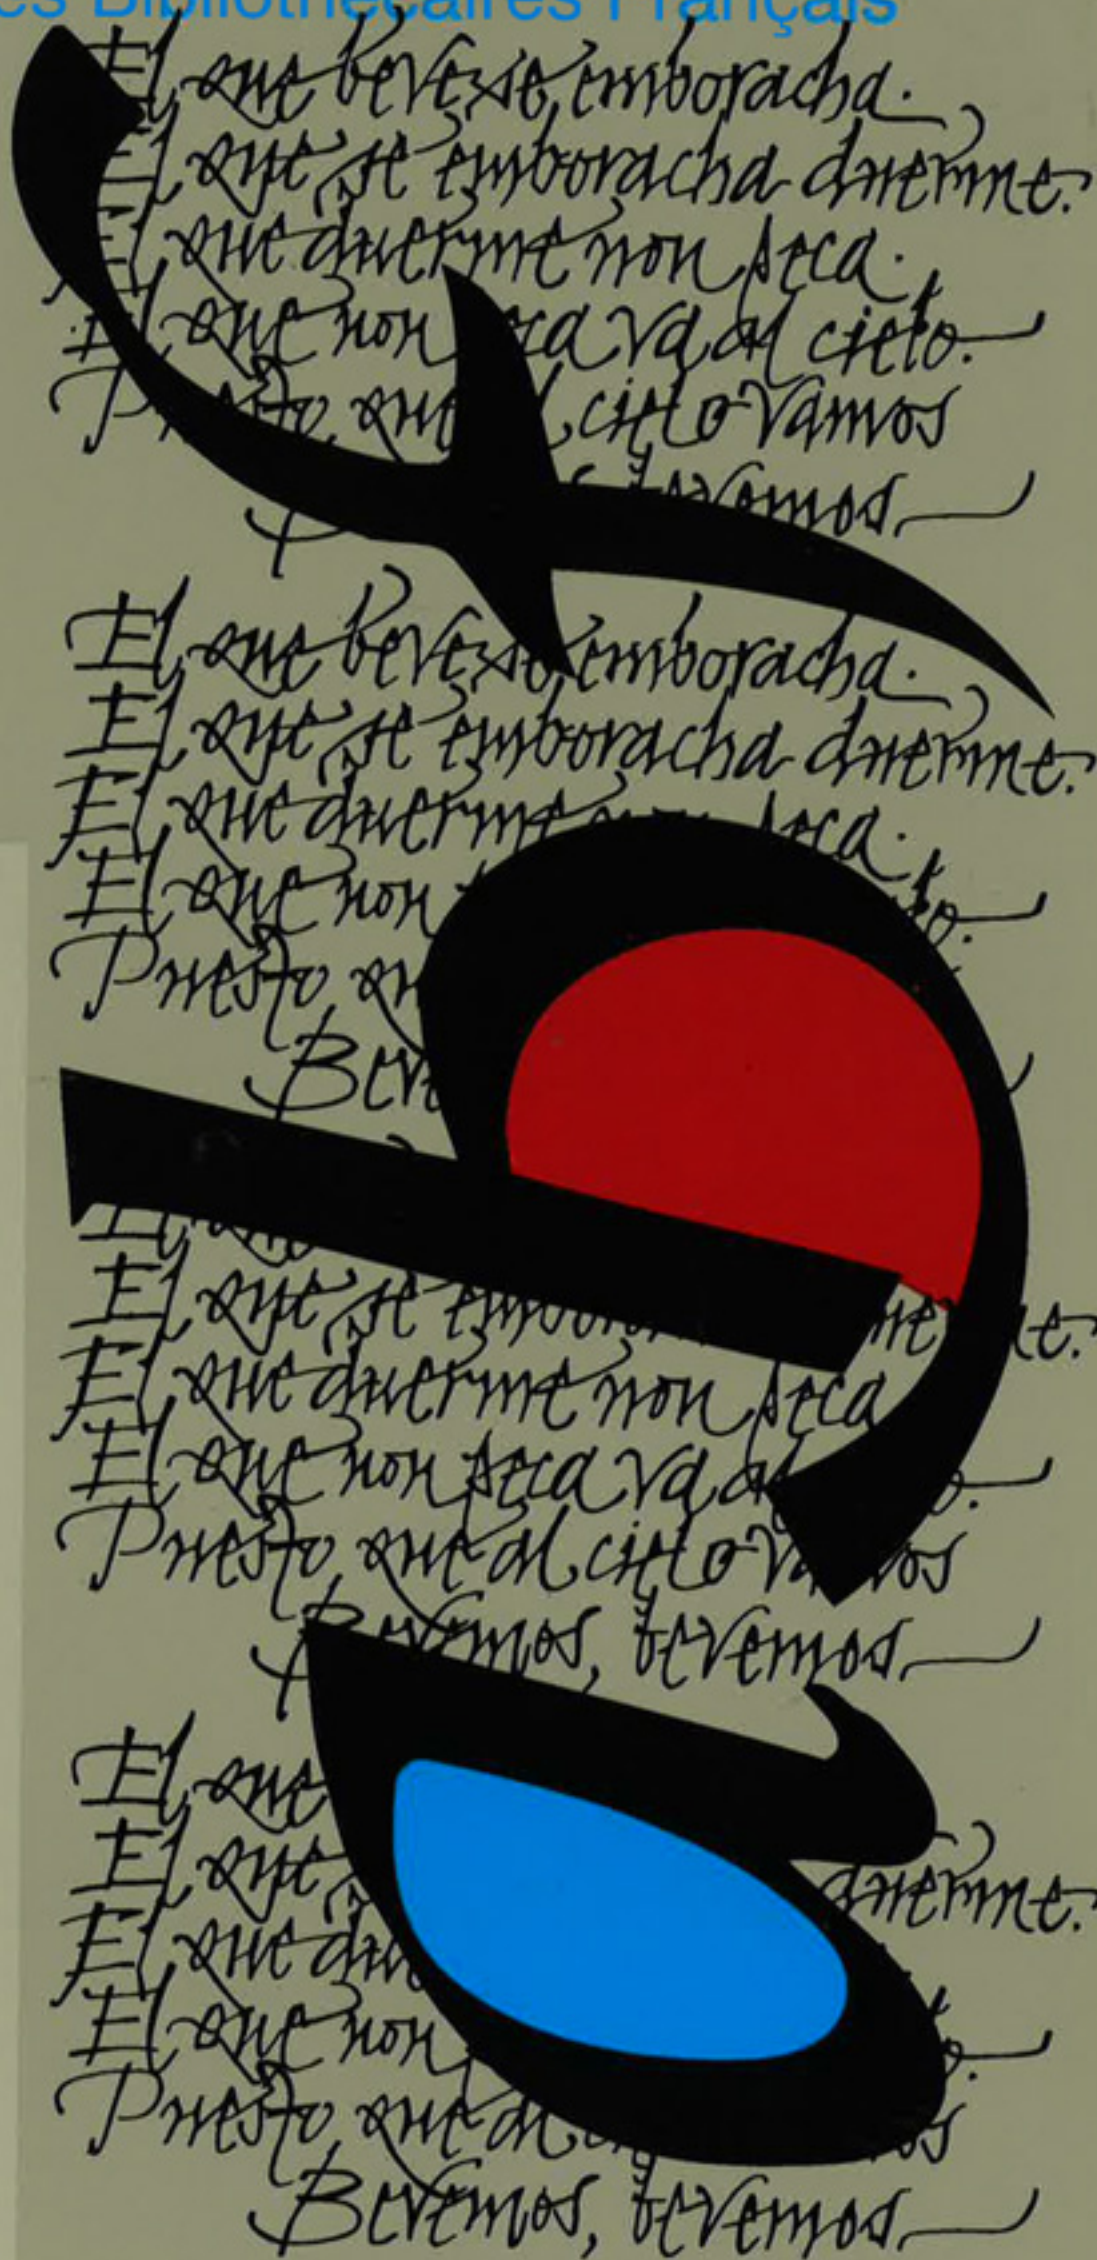 es Bibliothécaires Français
El que beve se emboracha.
El que se emboracha duerme.
El que duerme non peca.
El que non peca va al cielo.
Puesto que al cielo vamos
bevemos
El que beve se emboracha.
El que se emboracha duerme.
El que duerme non peca.
El que non
Puesto qu
Beve
El que
El que se embora
El que duerme non peca
El que non peca va al
Puesto que al cielo vamos
Bevemos, bevemos
El que
El que duerme.
El que du
El que non
Puesto que al
Bevemos, bevemos
abf